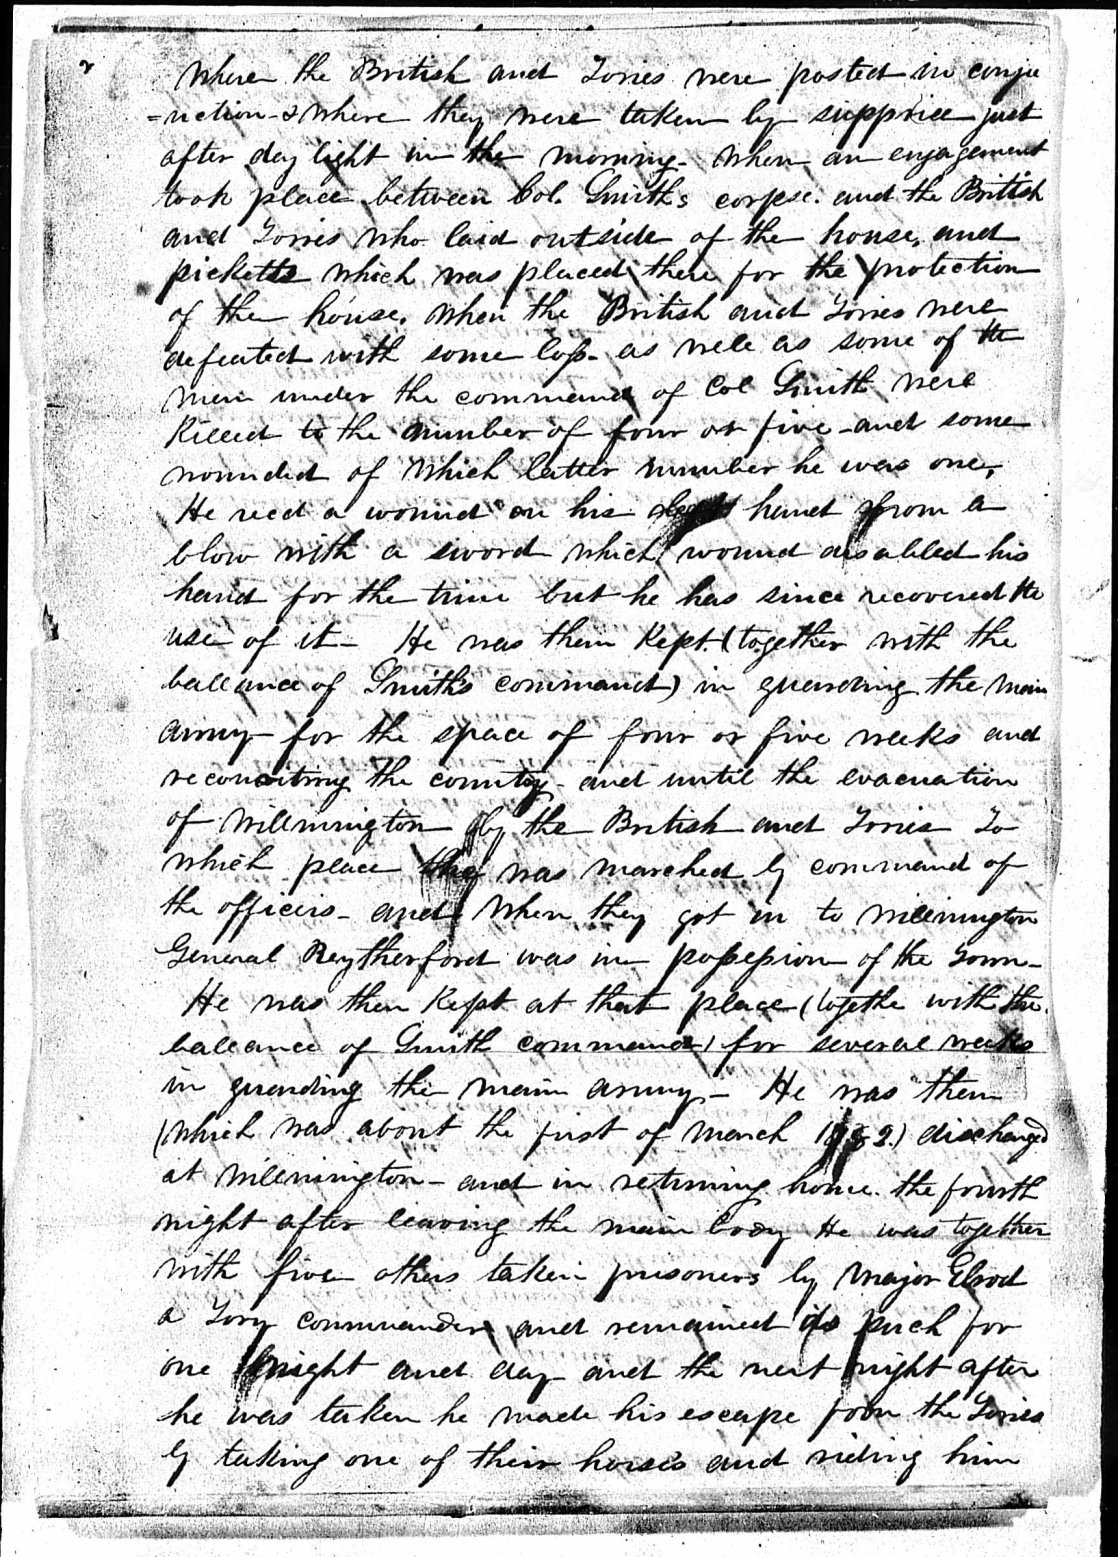 2
Where the British and Tories were posted in conju
=nction & Where they were taken by supprise just
after day light in the morning. When an engagement
took place between Col. Smiths corpse. and the British
and Tories who laid outside of the house, and
picketts which was placed there for the protection
of the house. When the British and Tories were
defeated with some loss- as well as some of the
men under the command of Col Smith were
Killed to the number of four or five - and some
wounded of which latter number he was one,
He recd a wound on his hand from a
blow with a sword which wound disabled his
hand for the time but he has since recovered the
use of it - He was then Kept. (together with the
ballance of Smith's command) in guarding the main
army for the space of four or five weeks and
reconoitring the country - and until the evacuation
of Willmington by the British and Tories To
which place they was marched by command of
the officers - and when they got in to Willmington
General Reytherford was in possession of the Town -
He was then Kept at that place (togethe with the
ballance of Smith command) for several weeks
in guarding the main army - He was then
(which was about the first of March 1782.) discharged
at Willmington - and in returning home. the fourth
night after leaving the main body He was together
with five others taken prisoners by Major Elrod
a Tory commander and remained as such for
one night and day and the next night after
he was taken he made his escape from the Tories
by taking one of their horses and riding him